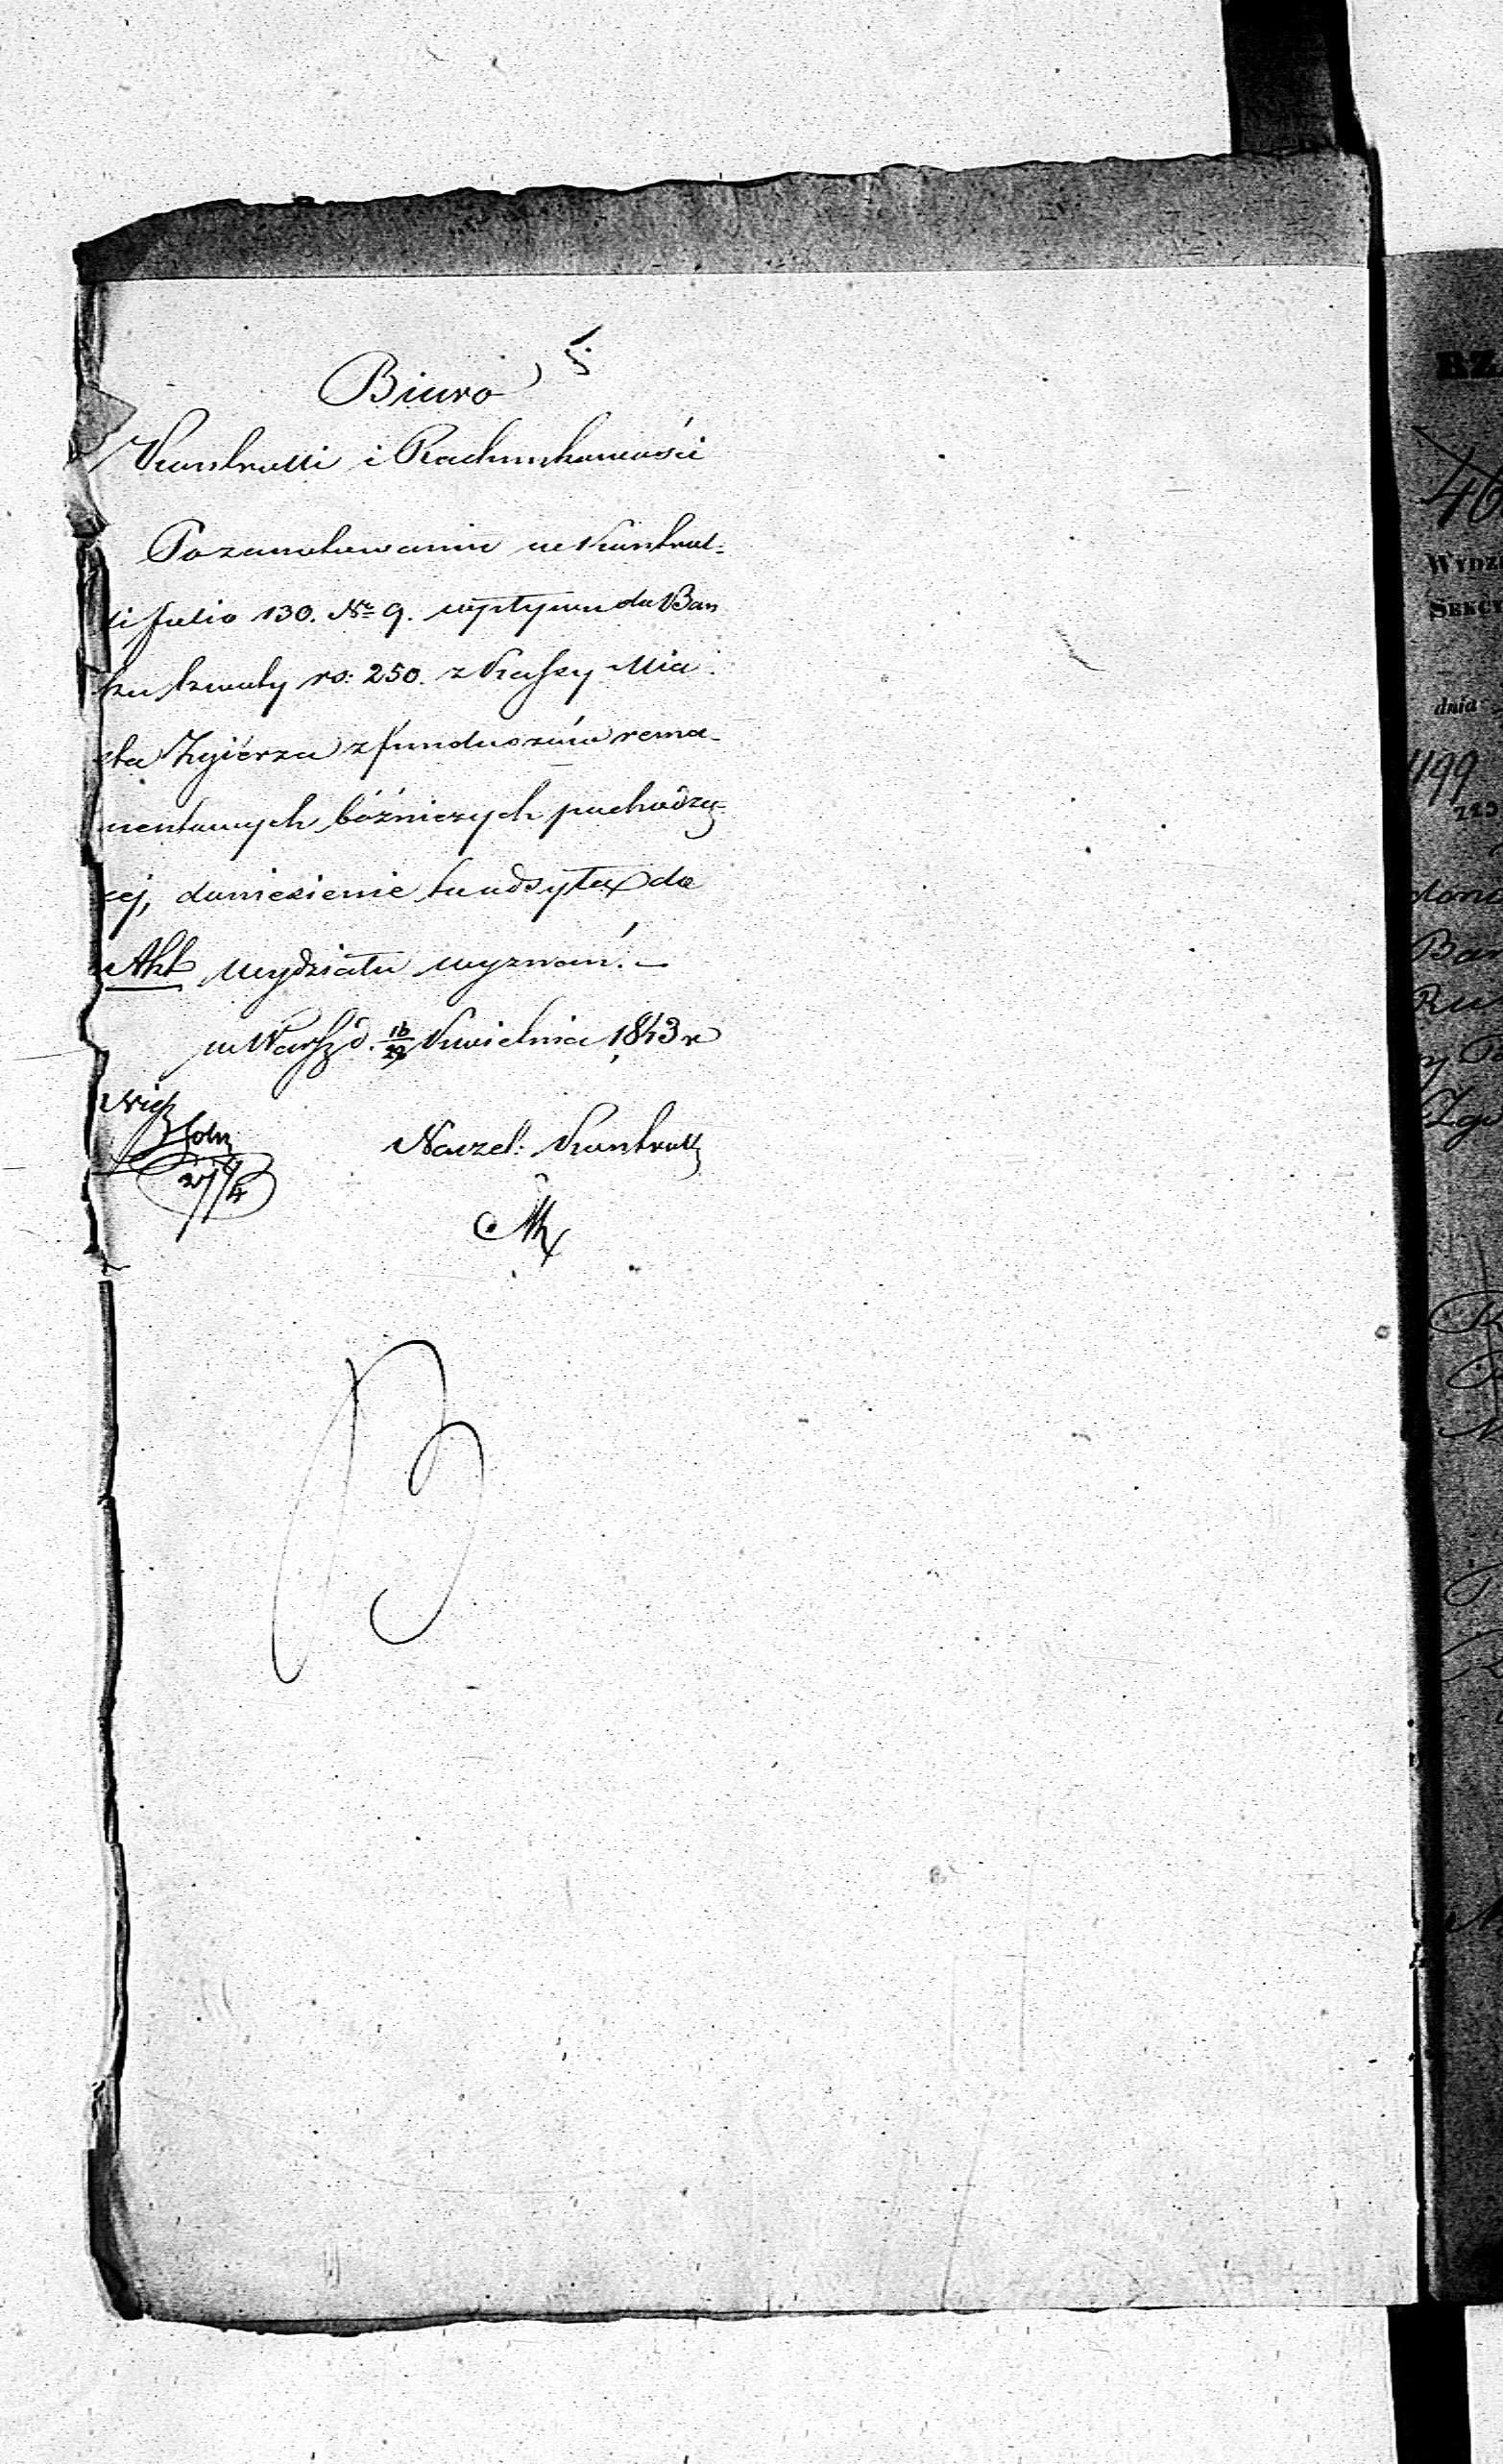 Biuro
Kontrolli i Rachunkowości
Po zanotowaniu w Kontrol-
li folio 130. No 9. wpływu do Ban
ku kwoty rs: 250. z Kassy Mia-
sta Zgierza z funduszów rema-
nentowych bóżniczych pochodzą-
cej, doniesienie to odsyła do
Akt wydziału wyznań. —
w Warsz d. 16/28 Kwietnia 1843 r
Naczel: Kontroll
27/4
BZ
46
WYDZ
SEKCY
dnia
1199
doni
Ban